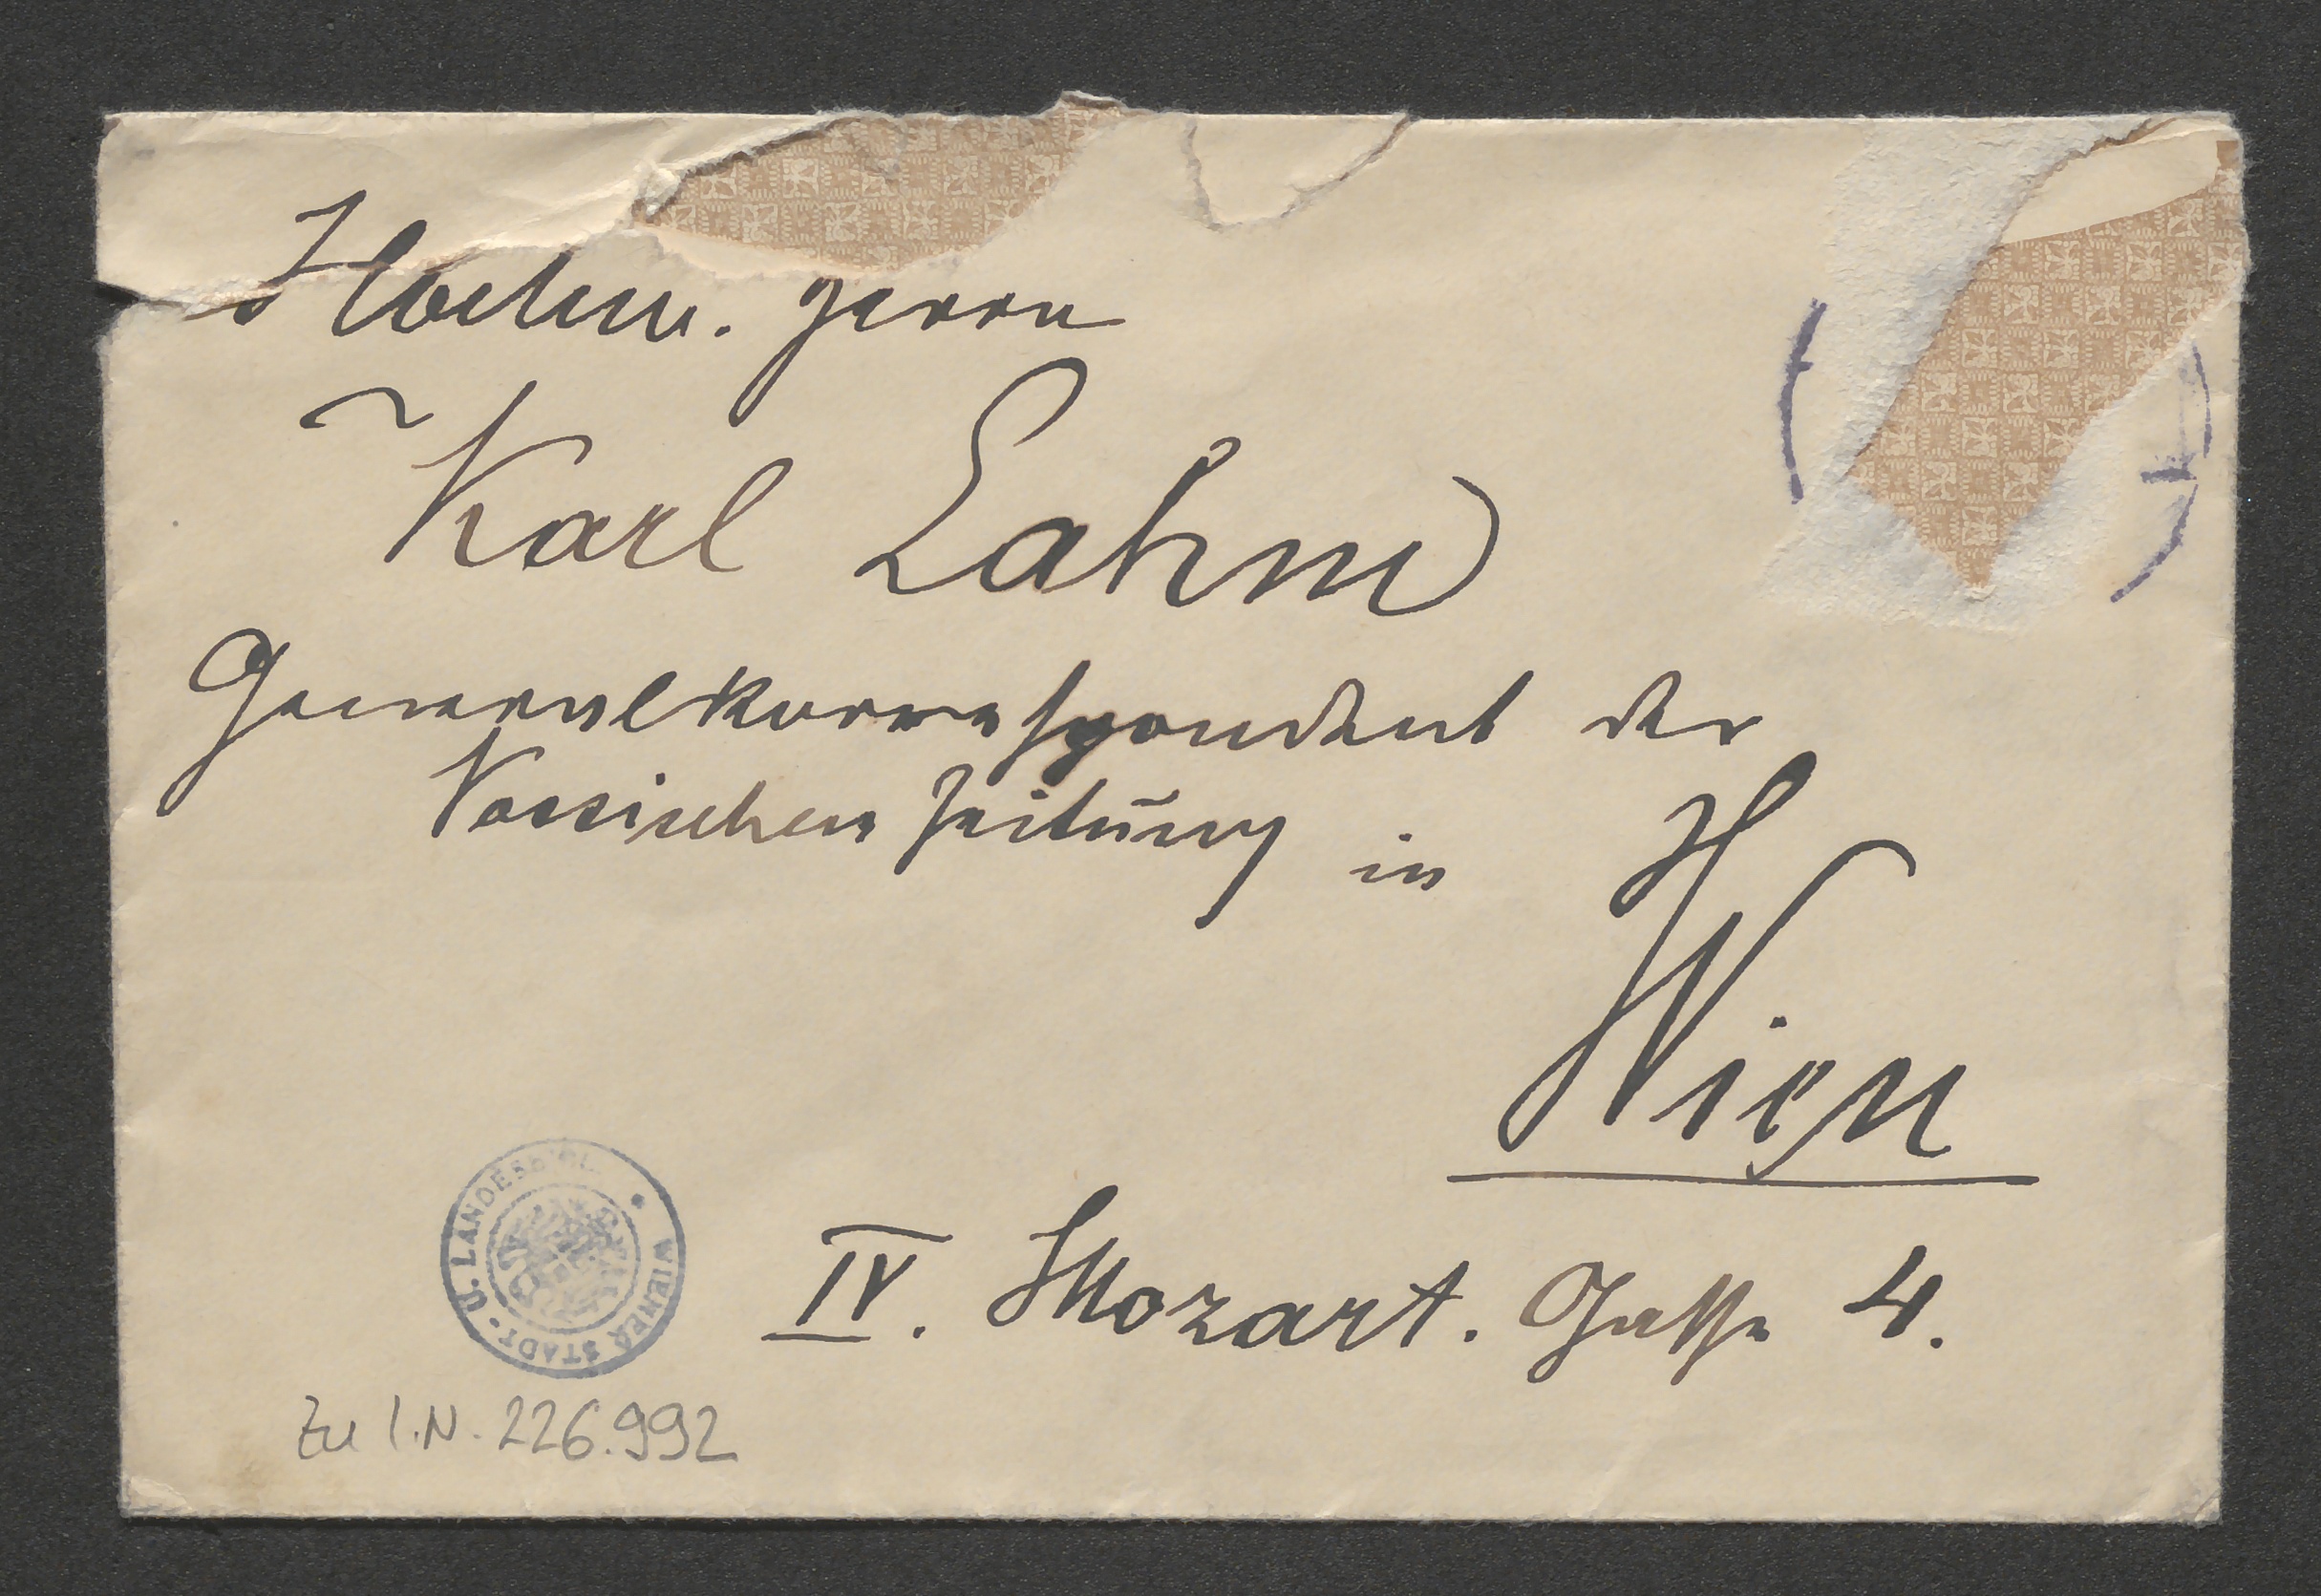 Hochw. Herrn
Karl Lahm
Generalkorrespondent der
Vossischen Zeitung in
Wien
IV. Mozart. Gasse 4.
WIENER STADT- U. LANDESBIBL.
Zu I.N. 226.992